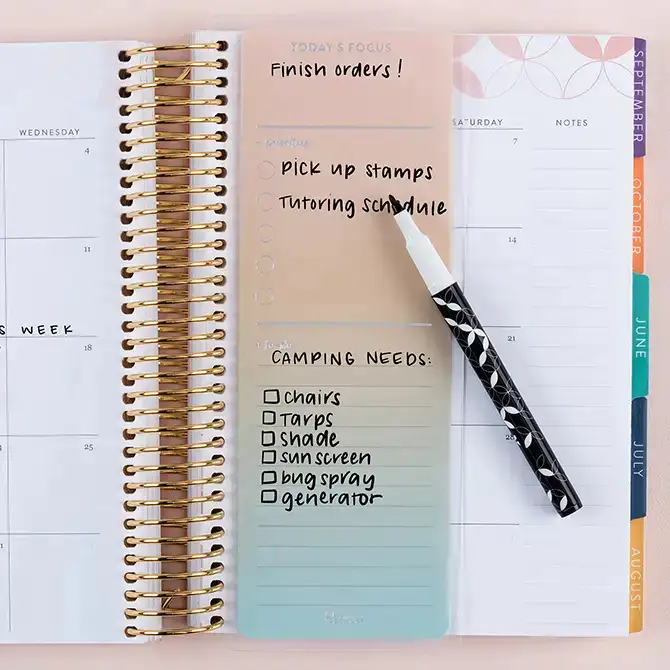 WEDNESDAY
4
11
S WEEK
18
25
TODAY'S FOCUS
Finish orders!
priorities
Pick up stamps
Tutoring schedule
to-do
CAMPING NEEDS:
chairs
Tarps
shade
sunscreen
bug spray
generator
SATURDAY
7
14
21
NOTES
SEPTEMBER
OCTOBER
JUNE
JULY
AUGUST